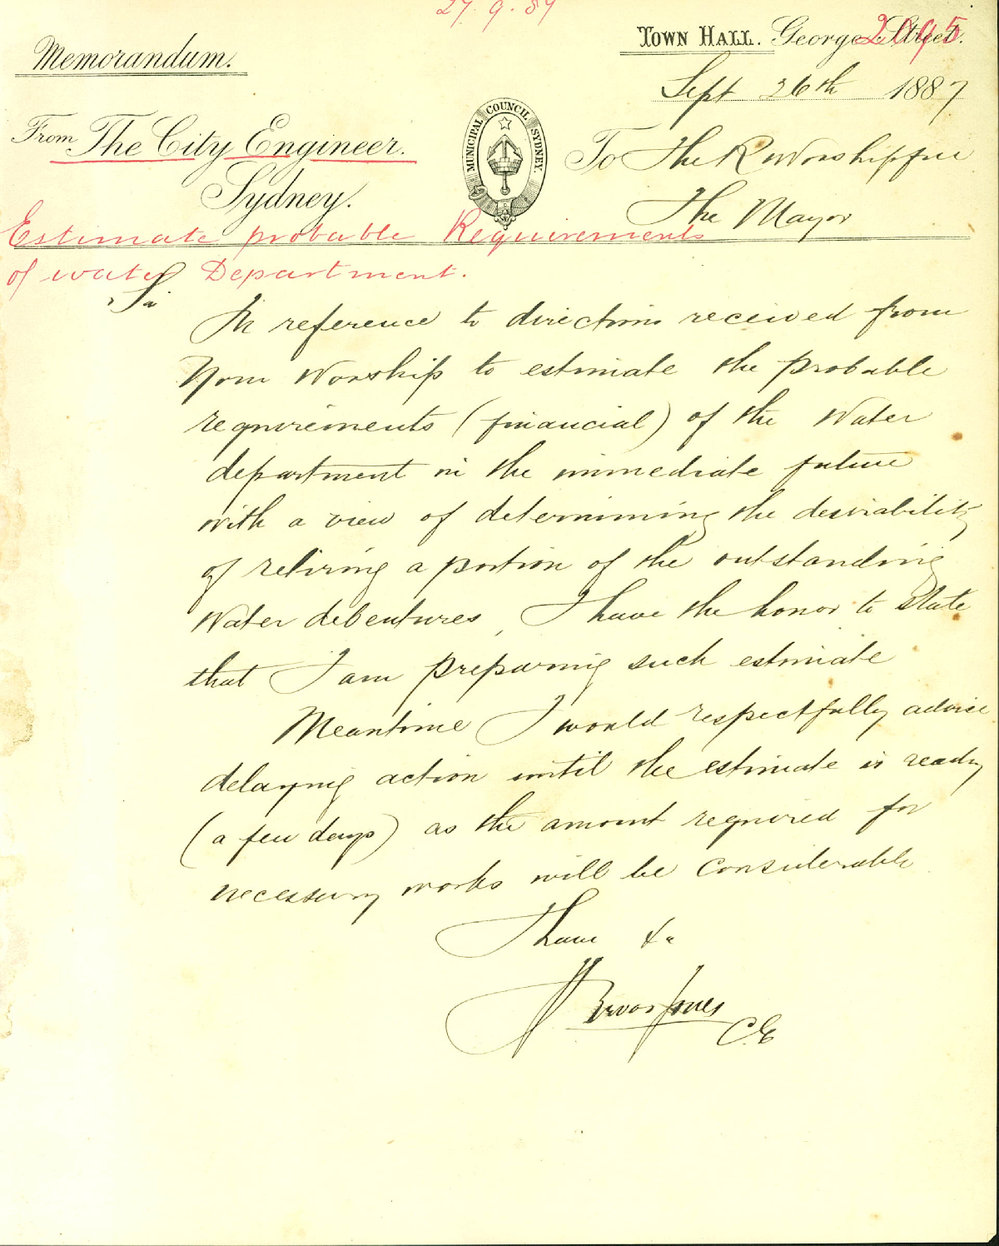 27.9.
Memorandum.
TOWN HALL. George Street.
2095
Sept 26th 1887
From The City Engineer.
Sydney.
MUNICIPAL COUNCIL SYDNEY.
To The R Worshipful
The Mayor
Estimate probable Requirements
of water Department.
Sir
In reference to directions received from
Your Worship to estimate the probable
requirements (financial) of the Water
department in the immediate future
with a view of determining the desirability
of retiring a portion of the outstanding
Water debentures, I have the honor to state
that I am preparing such estimate
Meantime I would respectfully advise
delaying action until the estimate is ready
(a few days) as the amount required for
necessary works will be considerable
I have &c
Trevor Jones
C.E